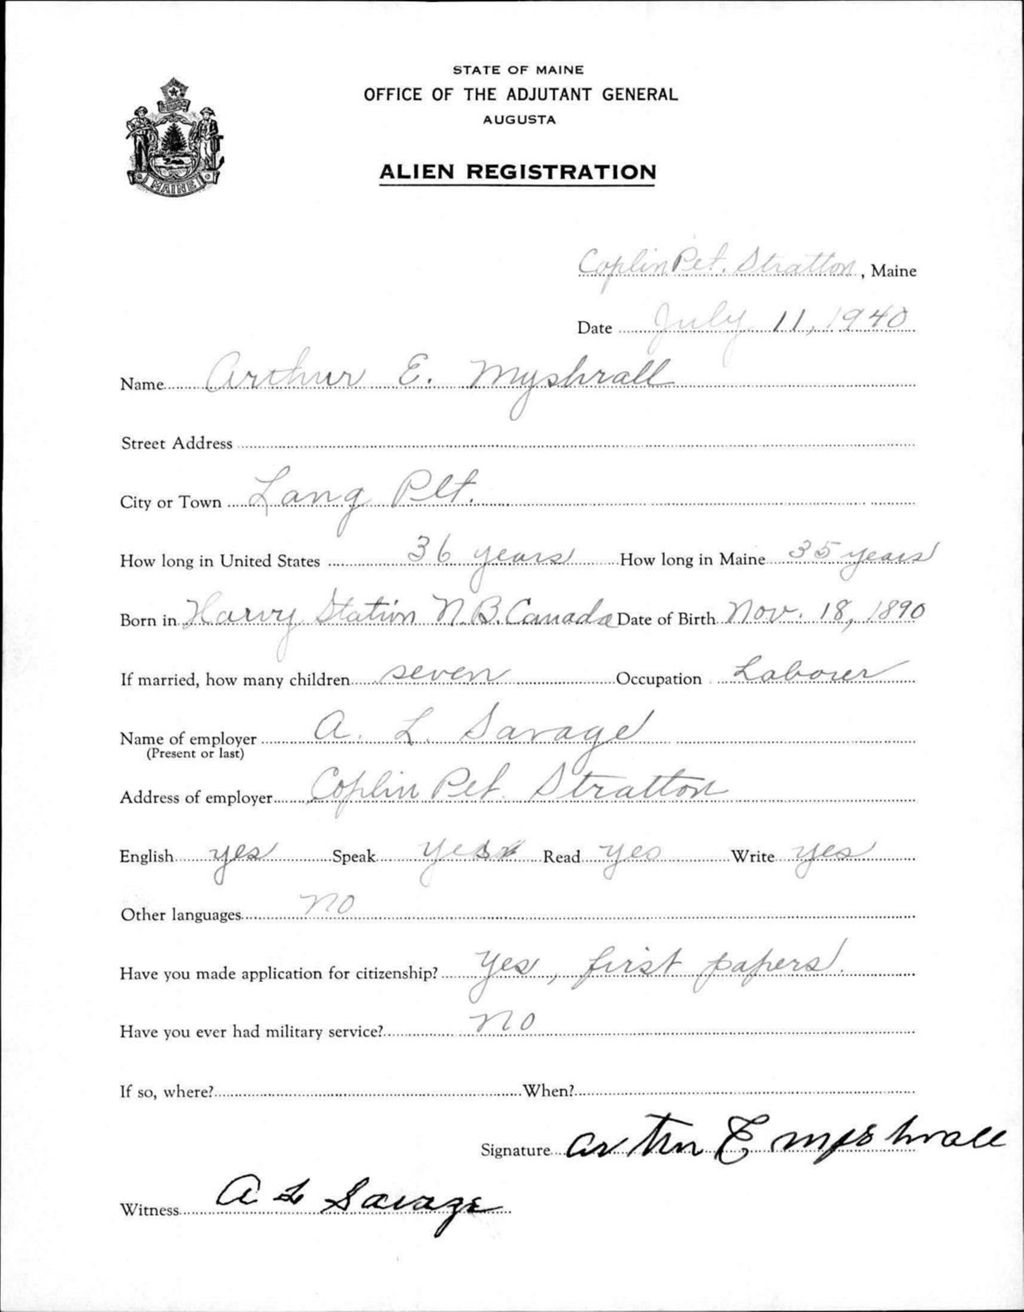 STATE OF MAINE
OFFICE OF THE ADJUTANT GENERAL
AUGUSTA
ALIEN REGISTRATION
MAINE
Coplin Plt. Stratton, Maine
Date July 11, 1940
Name Arthur E. Myshrall
Street Address
City or Town Lang Plt.
How long in United States 36 years How long in Maine 35 years
Born in Harvy Station N.B. Canada Date of Birth Nov. 18, 1890
If married, how many children seven Occupation Laborer
Name of employer A. L. Savage
(Present or last)
Address of employer Coplin Plt. Stratton
English yes Speak yes Read yes Write yes
Other languages no
Have you made application for citizenship? Yes, first papers.
Have you ever had military service? no
If so, where? When?
Signature Arthur E Myshrall
Witness A L Savage